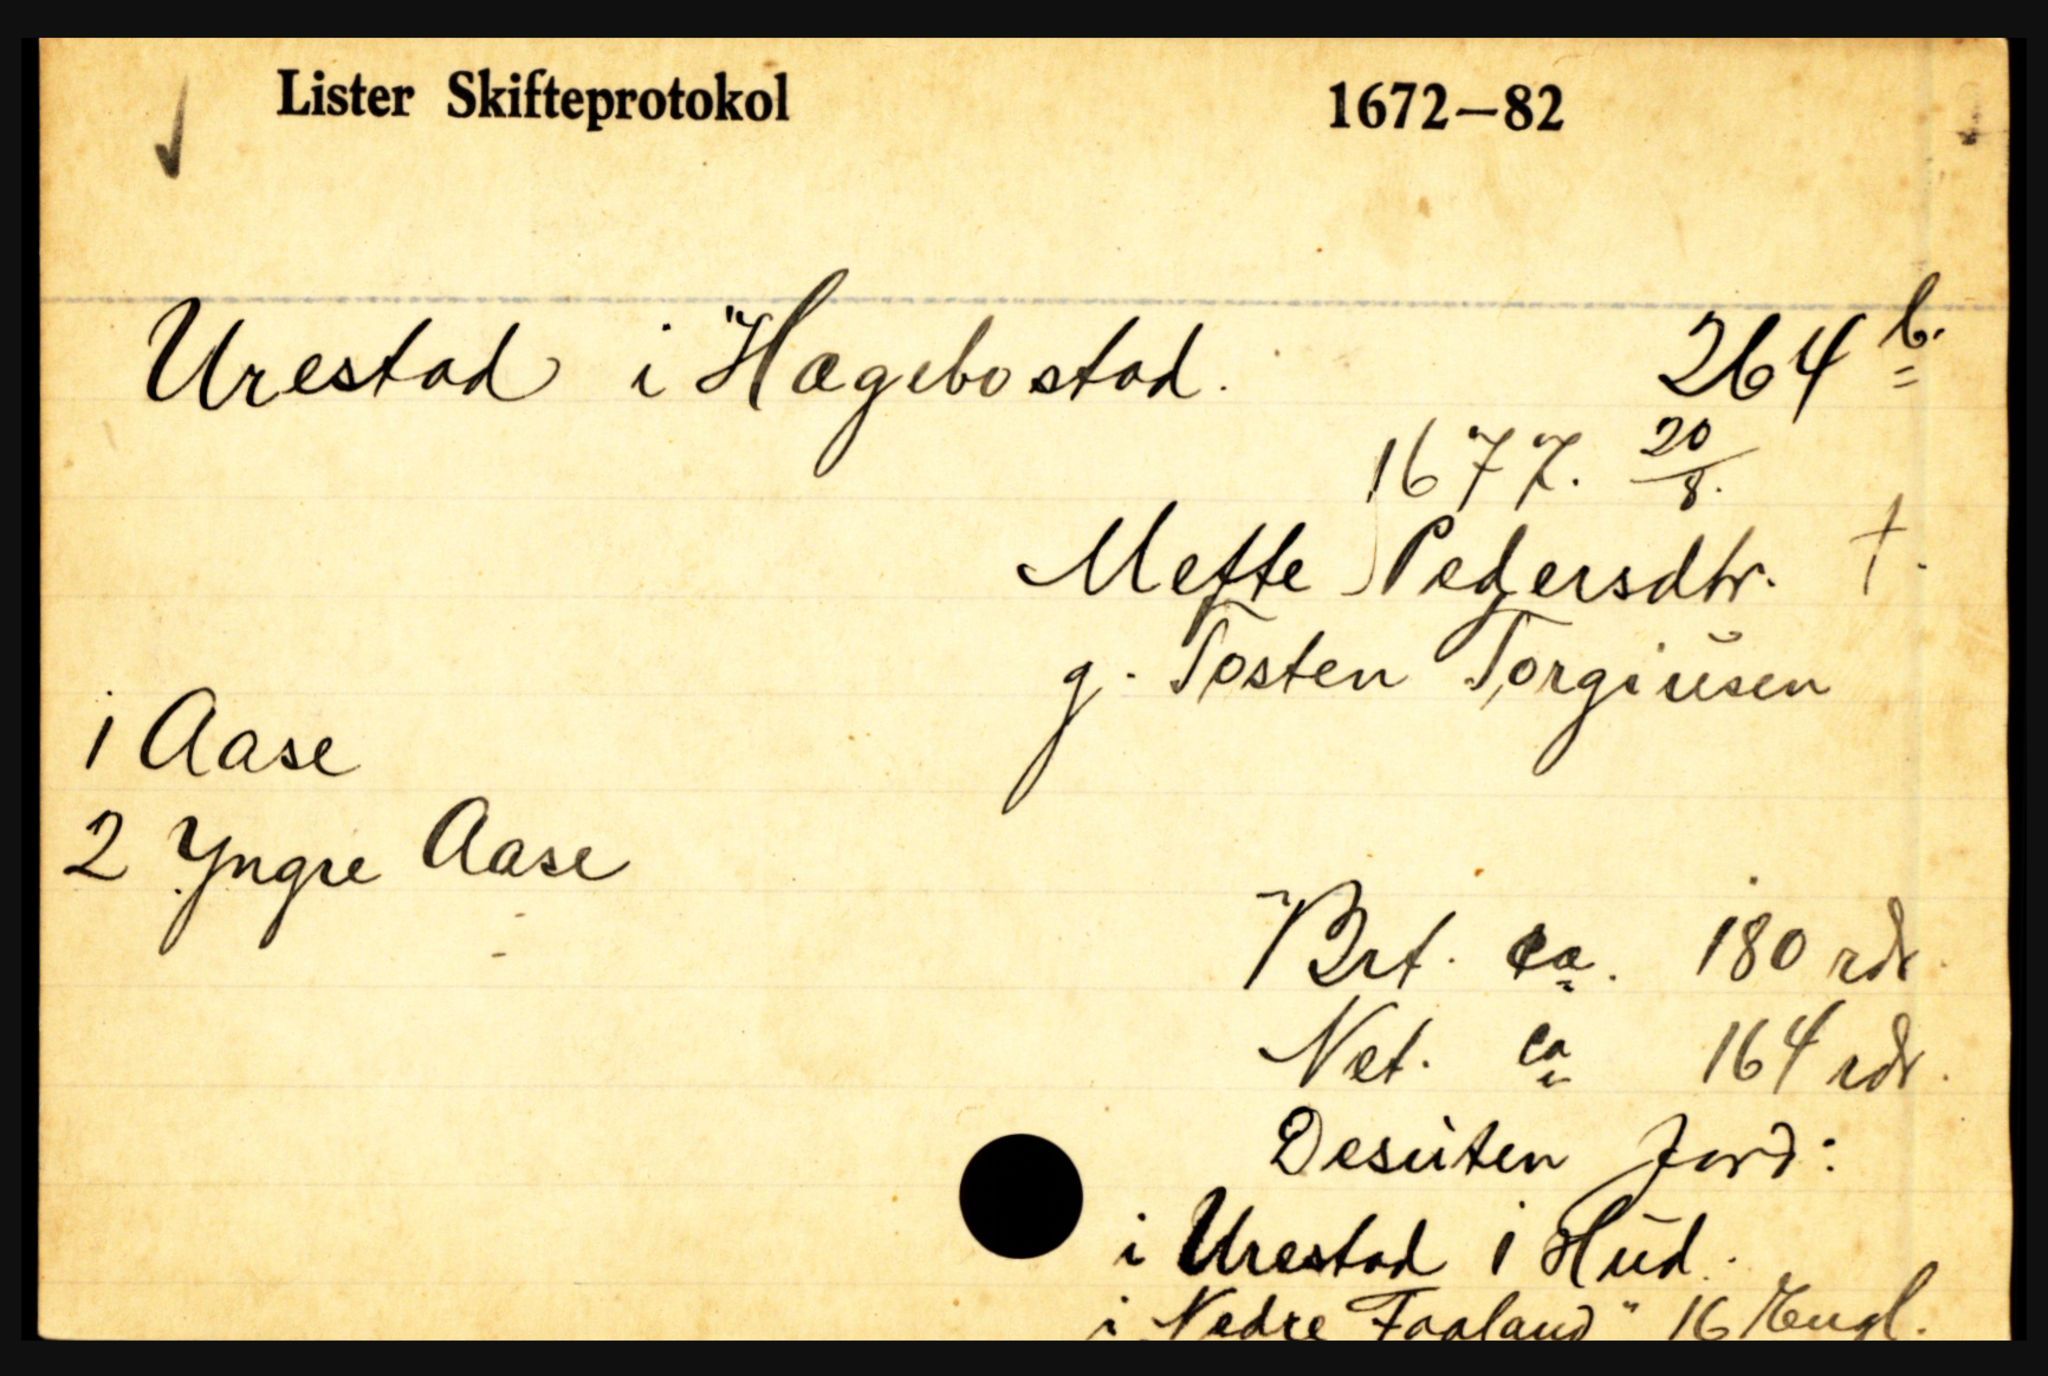 Lister Skifteprotokol 1672–82
Urestad i Hægebostad. 264 b.
1677. 20/8.
Mette Pedersdtr. †.
g. Tosten Torgiusen
1 Aase
2 Yngre Aase
Brt. ca. 180 rdr.
Net. ca 164 rdr.
Desuten Jord:
i Urestad 1 Hud.
i Nedre Faaland " 16 Engl.